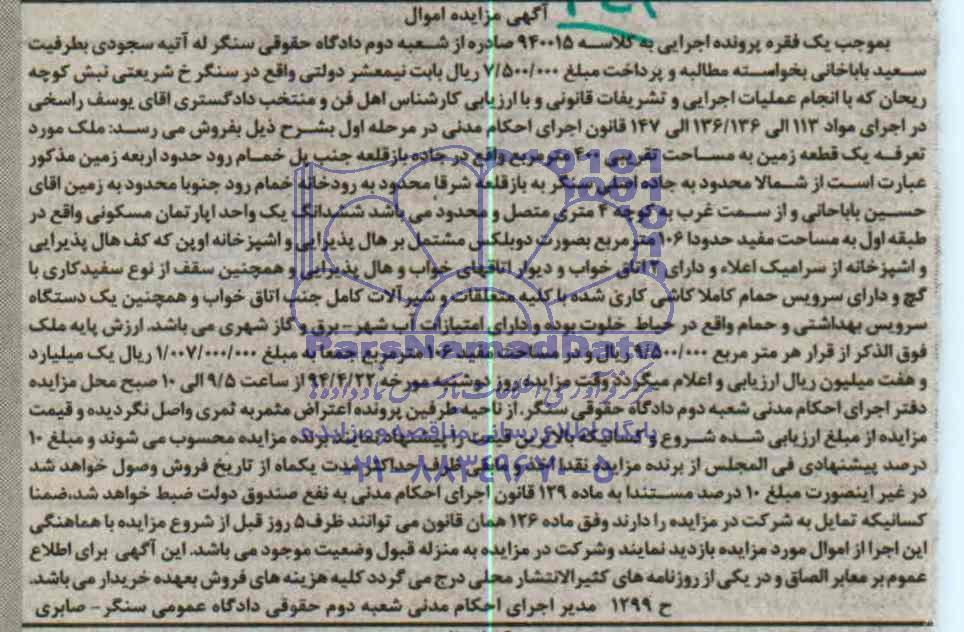 آگهی مزایده اموال
بموجب یک فقره پرونده اجرایی به کلاسه ۹۴۰۰۱۵ صادره از شعبه دوم دادگاه حقوقی سنگر له آتیه سجودی بطرفیت
سعید باباخانی بخواسته مطالبه و پرداخت مبلغ ۷/۵۰۰/۰۰۰ ریال بابت نیمعشر دولتی واقع در سنگر خ شریعتی نبش کوچه
ریحان که با انجام عملیات اجرایی و تشریفات قانونی و با ارزیابی کارشناس اهل فن و منتخب دادگستری اقای یوسف راسخی
در اجرای مواد ۱۱۳ الی ۱۳۶/۱۳۶ الی ۱۴۷ قانون اجرای احکام مدنی در مرحله اول بشرح ذیل بفروش می رسد: ملک مورد
تعرفه یک قطعه زمین به مساحت تقریبی ۴۰۰ مترمربع واقع در جاده بازقلعه جنب پل خمام رود حدود اربعه زمین مذکور
عبارت است از شمالا محدود به جاده اصلی سنگر به بازقلعه شرقا محدود به رودخانه خمام رود جنوبا محدود به زمین اقای
حسین باباحانی و از سمت غرب به کوچه ۴ متری متصل و محدود می باشد ششدانگ یک واحد اپارتمان مسکونی واقع در
طبقه اول به مساحت مفید حدودا ۱۰۶ مترمربع بصورت دوبلکس مشتمل بر هال پذیرایی و اشپزخانه اوپن که کف هال پذیرایی
و اشپزخانه از سرامیک اعلاء و دارای ۲ اتاق خواب و دیوار اتاقهای خواب و هال پذیرایی و همچنین سقف از نوع سفیدکاری با
گچ و دارای سرویس حمام کاملا کاشی کاری شده با کلیه متعلقات و شیرآلات کامل جنب اتاق خواب و همچنین یک دستگاه
سرویس بهداشتی و حمام واقع در حیاط خلوت بوده و دارای امتیازات آب شهر - برق و گاز شهری می باشد. ارزش پایه ملک
فوق الذکر از قرار هر متر مربع ۹/۵۰۰/۰۰۰ ریال و در مساحت مفید ۱۰۶ مترمربع جمعا به مبلغ ۱/۰۰۷/۰۰۰/۰۰۰ ریال یک میلیارد
و هفت میلیون ریال ارزیابی و اعلام میگردد وقت مزایده روز دوشنبه مورخه ۹۴/۴/۲۲ از ساعت ۹/۵ الی ۱۰ صبح محل مزایده
دفتر اجرای احکام مدنی شعبه دوم دادگاه حقوقی سنگر، از ناحیه طرفین پرونده اعتراض مثمر به ثمری واصل نگردیده و قیمت
مزایده از مبلغ ارزیابی شده شروع و کسانیکه بالاترین قیمت را پیشنهاد نمایند برنده مزایده محسوب می شوند و مبلغ ۱۰
درصد پیشنهادی فی المجلس از برنده مزایده نقدا اخذ و مابقی ظرف حداکثر مدت یکماه از تاریخ فروش وصول خواهد شد
در غیر اینصورت مبلغ ۱۰ درصد مستندا به ماده ۱۲۹ قانون اجرای احکام مدنی به نفع صندوق دولت ضبط خواهد شد، ضمنا
کسانیکه تمایل به شرکت در مزایده را دارند وفق ماده ۱۲۶ همان قانون می توانند ظرف ۵ روز قبل از شروع مزایده با هماهنگی
این اجرا از اموال مورد مزایده بازدید نمایند وشرکت در مزایده به منزله قبول وضعیت موجود می باشد. این آگهی برای اطلاع
عموم بر معابر الصاق و در یکی از روزنامه های کثیرالانتشار محلی درج می گردد کلیه هزینه های فروش بعهده خریدار می باشد.
ح ۱۲۹۹ مدیر اجرای احکام مدنی شعبه دوم حقوقی دادگاه عمومی سنگر - صابری
ParsNamadData
پایگاه اطلاع رسانی مناقصه و مزایده
۰۲۱-۸۸۳۴۹۶۷۰-۵